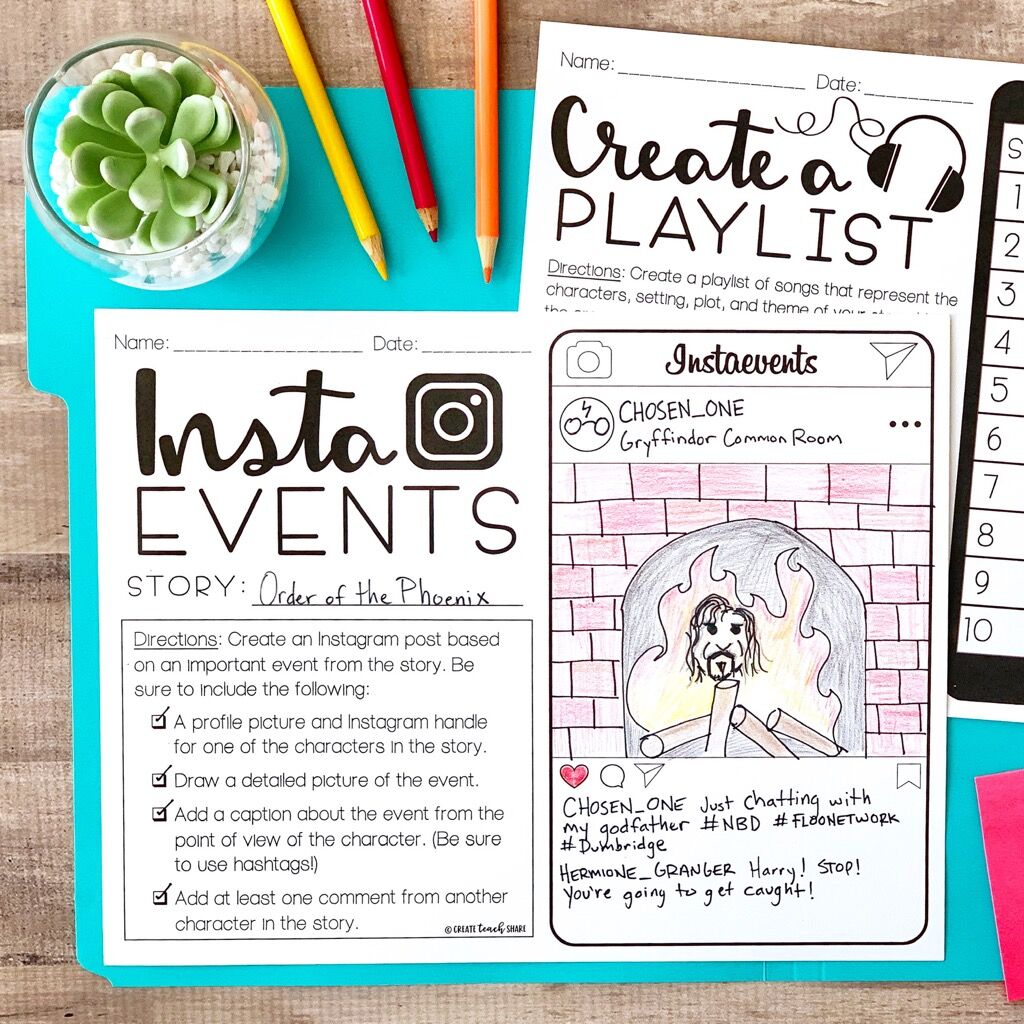 Name: Date:
Create a
PLAYLIST
Directions: Create a playlist of songs that represent the
characters, setting, plot, and theme of your
S
1
2
3
4
5
6
7
8
9
10
Name: Date:
Insta
EVENTS
STORY: Order of the Phoenix
Directions: Create an Instagram post based
on an important event from the story. Be
sure to include the following:
A profile picture and Instagram handle
for one of the characters in the story.
Draw a detailed picture of the event.
Add a caption about the event from the
point of view of the character. (Be sure
to use hashtags!)
Add at least one comment from another
character in the story.
© CREATE teach SHARE
Instaevents
CHOSEN_ONE
Gryffindor Common Room
CHOSEN_ONE Just chatting with
my godfather #NBD #FLOONETWORK
#Dumbridge
HERMIONE_GRANGER Harry! STOP!
You're going to get caught!